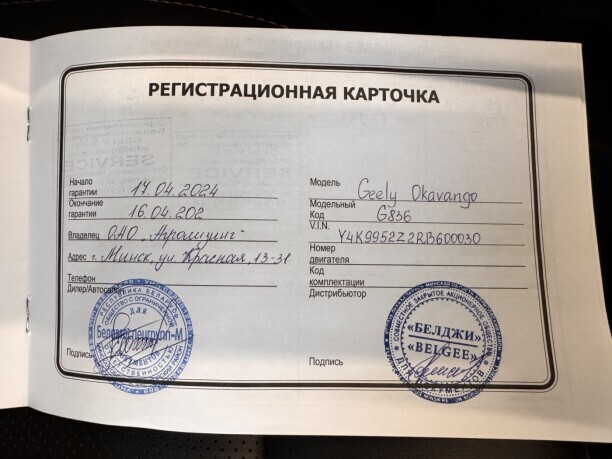 РЕГИСТРАЦИОННАЯ КАРТОЧКА
Начало гарантии 17.04.2024
Окончание гарантии 16.04.202
Владелец ОАО "Агролизинг"
Адрес г. Минск, ул. Красная, 13-31
Телефон
Дилер/Автосалон
РЕСПУБЛИКА БЕЛАРУСЬ
ОБЩЕСТВО С ОГРАНИЧЕННОЙ
ДЛЯ
ДОКУМЕНТОВ
ОТВЕТСТВЕННОСТЬЮ
Подпись
Модель Geely Okavango
Модельный Код G836
V.I.N. Y4K9952Z2RB600030
Номер двигателя
Код комплектации
Дистрибьютор
СОВМЕСТНОЕ ЗАКРЫТОЕ АКЦИОНЕРНОЕ ОБЩЕСТВО
«БЕЛДЖИ»
«BELGEE»
ДЛЯ ДОКУМЕНТОВ
Подпись
SERVICE
SERVICE